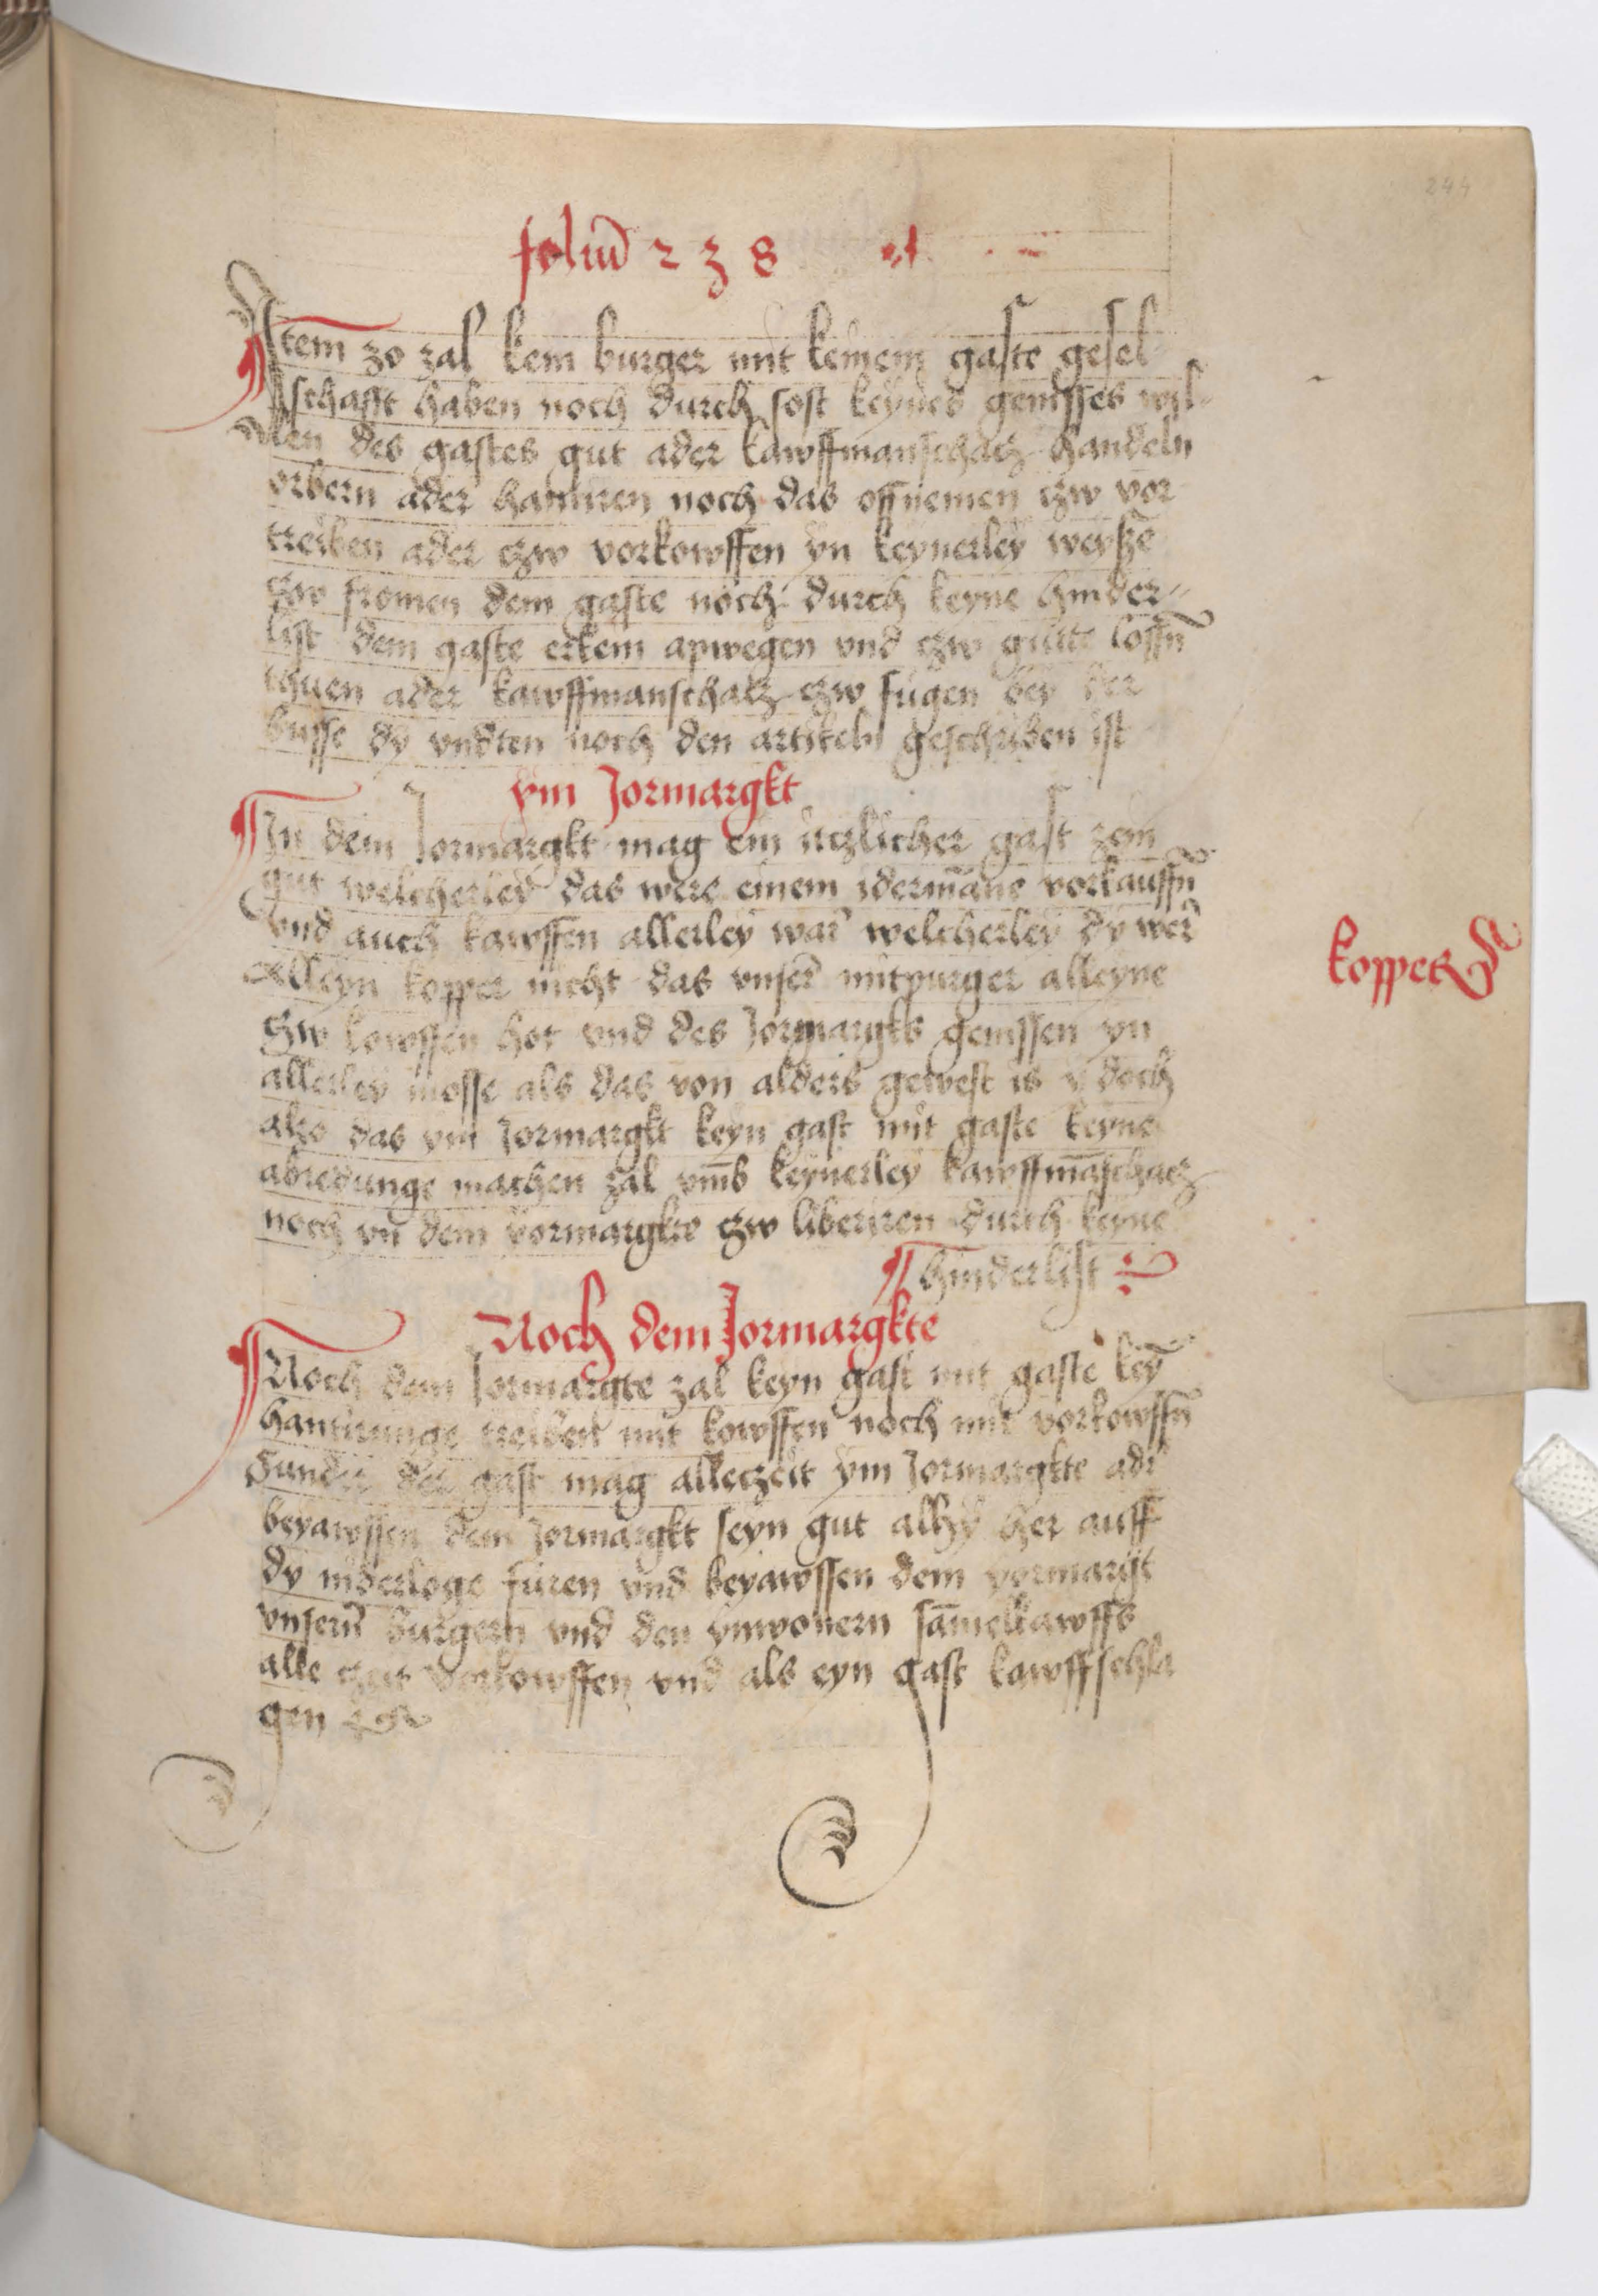 244
foliū 2 3 8
Item zo zal kein burger mit keinem gaste gesel
schafft haben noch durch sost keynes genisses wil-
len des gastes gut ader kawffmanschacz handeln
orbern ader hantiren noch das offnemen czw vor
treiben ader czw vorkowffen yn keynerley weysze
czw fromen dem gaste noch durch keyne hinder-
list dem gaste erkein apwegen vnd czw gutte lossn̄
thuen ader kawffmanschacz czw fugen bey der
busse dy vndten noch den artikeln geschriben ist
ym Jormargkt
In dem Jormargkt mag ein iczlicher gast zein
gut welcherley das were einem idermāne vorkauffn̄
vnd auch kawffen allerley war welcherley dy wer
Alleyn kopper nicht das vnser mitpurger alleyne
koppers
Czw kowffen hot vnd des Jormargkts genissen yn
allerley mosse als das von alders gewest is y doch
alzo das ym Jormargkt keyn gast mit gaste keyne
abredunge machen zal vmb keynerley kawffmāschacz
noch yn dem yormargkte czw liberiren durch keyne
hinderlist
Noch dem Jormargkte
Noch dem Jormargte zal keyn gast mit gaste keȳ
hantirunge treiben mit kowffen noch mit vorkowffn̄
Sunder der gast mag alleczeit ym Jormargkte adr
beyawssen dem Jormargkt seyn gut alhy her auff
dy niderloge furen vnd beyawssen dem yormargt
vnsern burgern vnd den ynwonern sāmelkawffs
alle czeit vorkowffen vnd als eyn gast kawffschla
gen